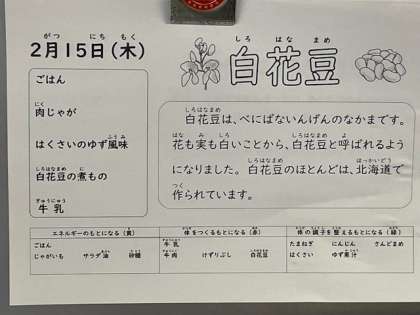 2月15日(木)
白花豆
ごはん
肉じゃが
はくさいのゆず風味
白花豆の煮もの
牛乳
白花豆は、べにばないんげんのなかまです。
花も実も白いことから、白花豆と呼ばれるよう
になりました。白花豆のほとんどは、北海道で
作られています。
エネルギーのもとになる(黄)
ごはん
じゃがいも サラダ油 砂糖
体をつくるもとになる(赤)
牛乳
牛肉 けずりぶし 白花豆
体の調子を整えるもとになる(緑)
たまねぎ にんじん さんどまめ
はくさい ゆず果汁